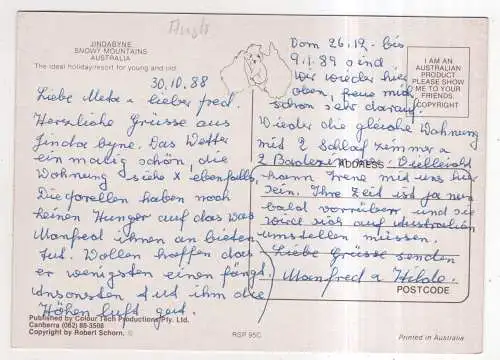 Austr
JINDABYNE
SNOWY MOUNTAINS
AUSTRALIA
The ideal holiday/resort for young and old.
30.10.88
Liebe Meta u lieber Fred.
Herrliche Grüsse aus
Jindabyne. Das Wetter
einmalig schön, die
Wohnung siehe X ebenfalls.
Die forellen haben noch
keinen Hunger auf das was
Manfred ihnen an bieten
tut. Wollen hoffen das
er wenigsten einen fängt.
Ansonsten tut ihm die
Höhen luft gut.
Vom 26.12. bis
9.1.89 sind
wir wieder hier
oben, freue mich
schon sehr darauf.
Wieder die gleiche Wohnung
mit 2 Schlafzimmer u
2 Badezimmer. Vielleicht
kann Irene mit uns hier
sein. Ihre Zeit ist ja nun
bald vorrüber und sie
wird sich auf Australien
umstellen müssen.
Liebe Grüsse senden
Manfred u Hilde.
I AM AN
AUSTRALIAN
PRODUCT
PLEASE SEND
ME TO YOUR
FRIENDS
COPYRIGHT
ADDRESS
POSTCODE
Published by Colour Tech Productions Pty. Ltd.
Canberra (062) 88-3508
Copyright by Robert Schorn. ©
RSP 95C
Printed in Australia